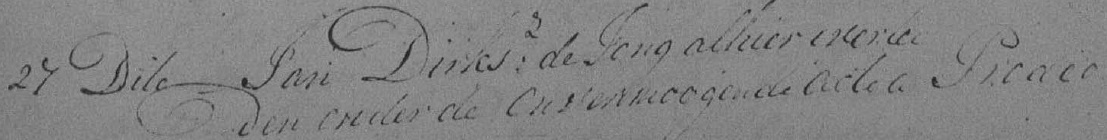 27 Dito Jan Dirksz: de Jong alhier overlee
den onder de onvermoogende acte Pro deo